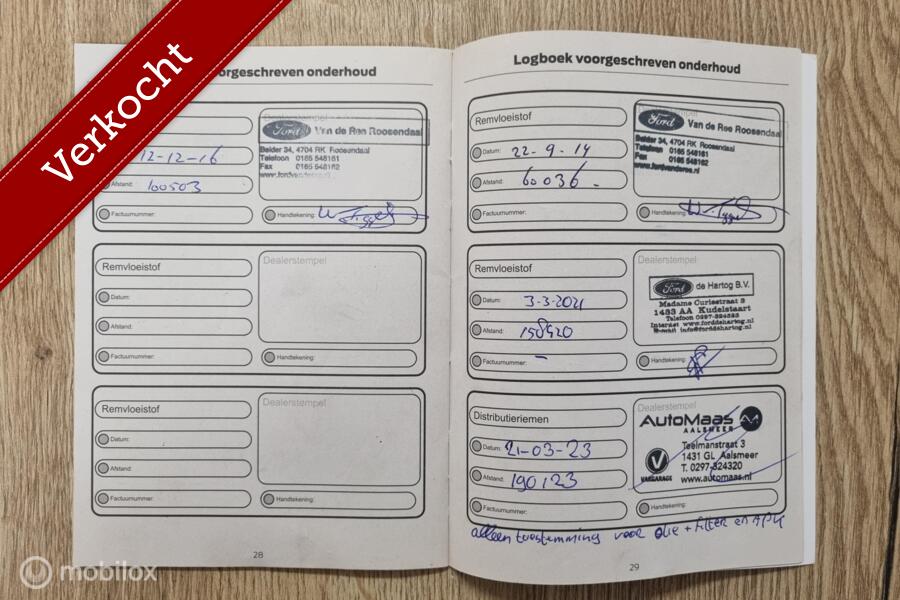 Verkocht
orgeschreven onderhoud
Dealerstempel
Ford Van de Ree Roosendaal
Belder 34, 4704 RK Roosendaal
Telefoon 0165 548161
Fax 0165 548162
www.fordvanderee.nl
12-12-16
Afstand: 100503
Factuurnummer:
Handtekening:
Remvloeistof
Datum:
Afstand:
Factuurnummer:
Dealerstempel
Handtekening:
Remvloeistof
Datum:
Afstand:
Factuurnummer:
Dealerstempel
Handtekening:
28
Logboek voorgeschreven onderhoud
Remvloeistof
Datum: 22-9-14
Afstand: 60036 -
Factuurnummer:
Ford Van de Ree Roosendaal
Belder 34, 4704 RK Roosendaal
Telefoon 0165 548161
Fax 0165 548162
www.fordvanderee.nl
Handtekening:
Remvloeistof
Datum: 3-3-2021
Afstand: 158420
Factuurnummer: -
Dealerstempel
Ford de Hartog B.V.
Madame Curiestraat 8
1433 AA Kudelstaart
Telefoon 0297-324523
Internet www.forddehartog.nl
E-mail info@forddehartog.nl
Handtekening:
Distributieriemen
Datum: 21-03-23
Afstand: 190123
Factuurnummer:
Dealerstempel
AutoMaas
AALSMEER
Teelmanstraat 3
1431 GL Aalsmeer
T. 0297-324320
www.automaas.nl
VAKGARAGE
Handtekening:
alleen toestemming voor olie + filter en APK
29
mobilox